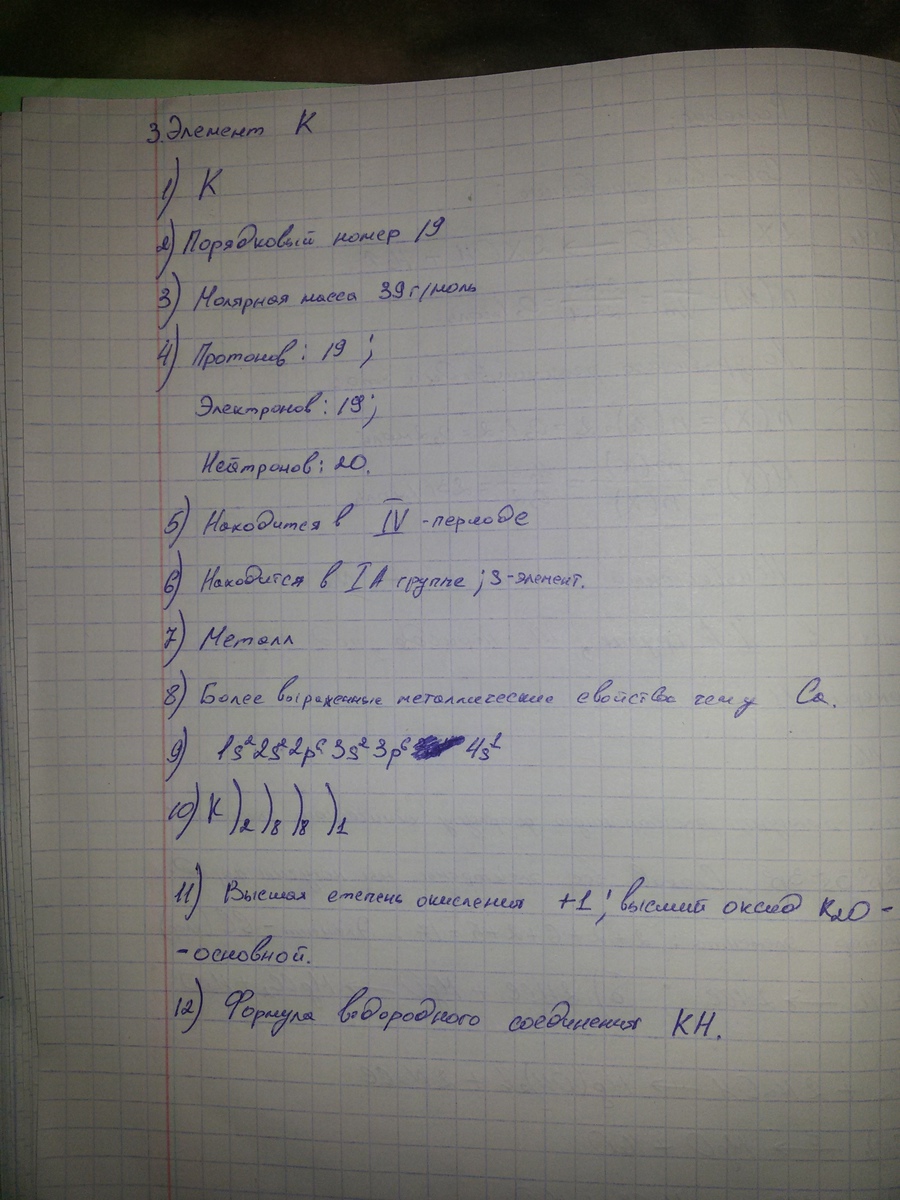 3. Элемент K
1) K
2) Порядковый номер 19
3) Молярная масса 39 г/моль
4) Протонов: 19;
Электронов: 19;
Нейтронов: 20.
5) Находится в IV -периоде
6) Находится в IA группе; s-элемент.
7) Металл
8) Более выраженные металлические свойства чем у Ca.
9) 1s²2s²2p⁶3s²3p⁶ 4s¹
10) K )₂ )₈ )₈ )₁
11) Высшая степень окисления +1; высший оксид K₂O -
- основной.
12) Формула водородного соединения KH.